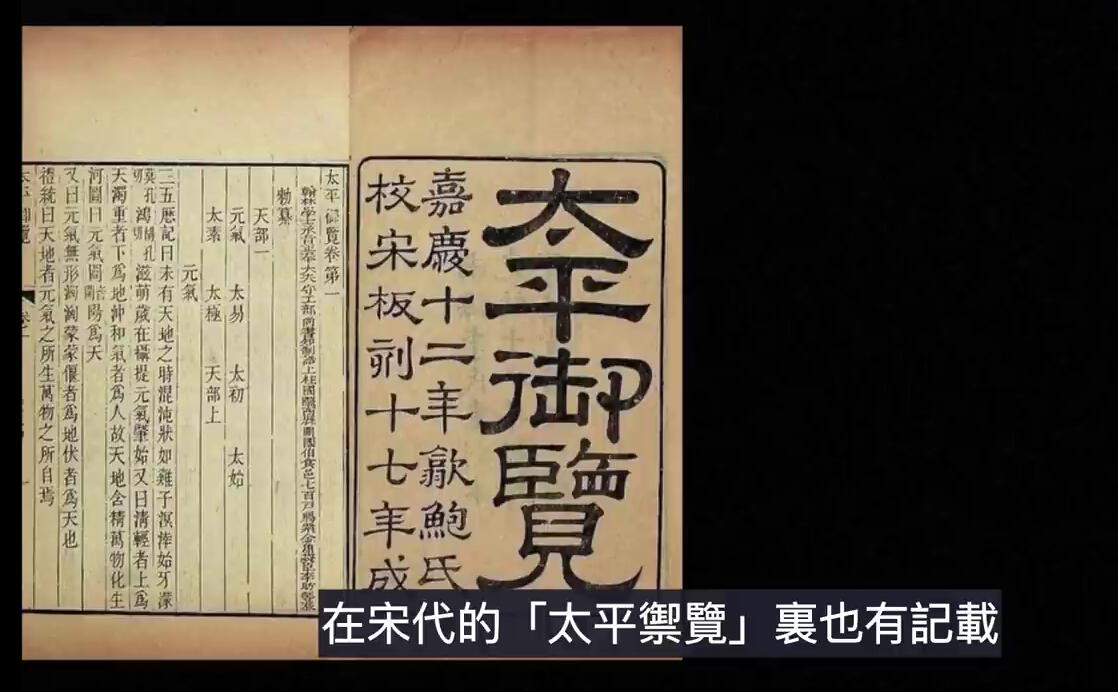 太平御覽
嘉慶十二年歙鮑氏
校宋板刻十七年成
太平御覽卷第一
翰林學士承旨正奉大夫守工部尚書知制誥上柱國隴西縣開國伯食邑七百戶賜紫金魚袋臣李昉等奉
勑纂
天部一
元氣 太易 太初 太始
太素 太極 天部上
元氣
三五厯記曰未有天地之時混沌狀如雞子溟涬始牙濛
鴻滋萌歲在攝提元氣肇始又曰清輕者上爲
天濁重者下爲地沖和氣者爲人故天地含精萬物化生
河圖曰元氣闓陽爲天
又曰元氣無形洶洶蒙蒙偃者爲地伏者爲天也
禮統曰天地者元氣之所生萬物之所自焉
在宋代的「太平禦覽」裏也有記載